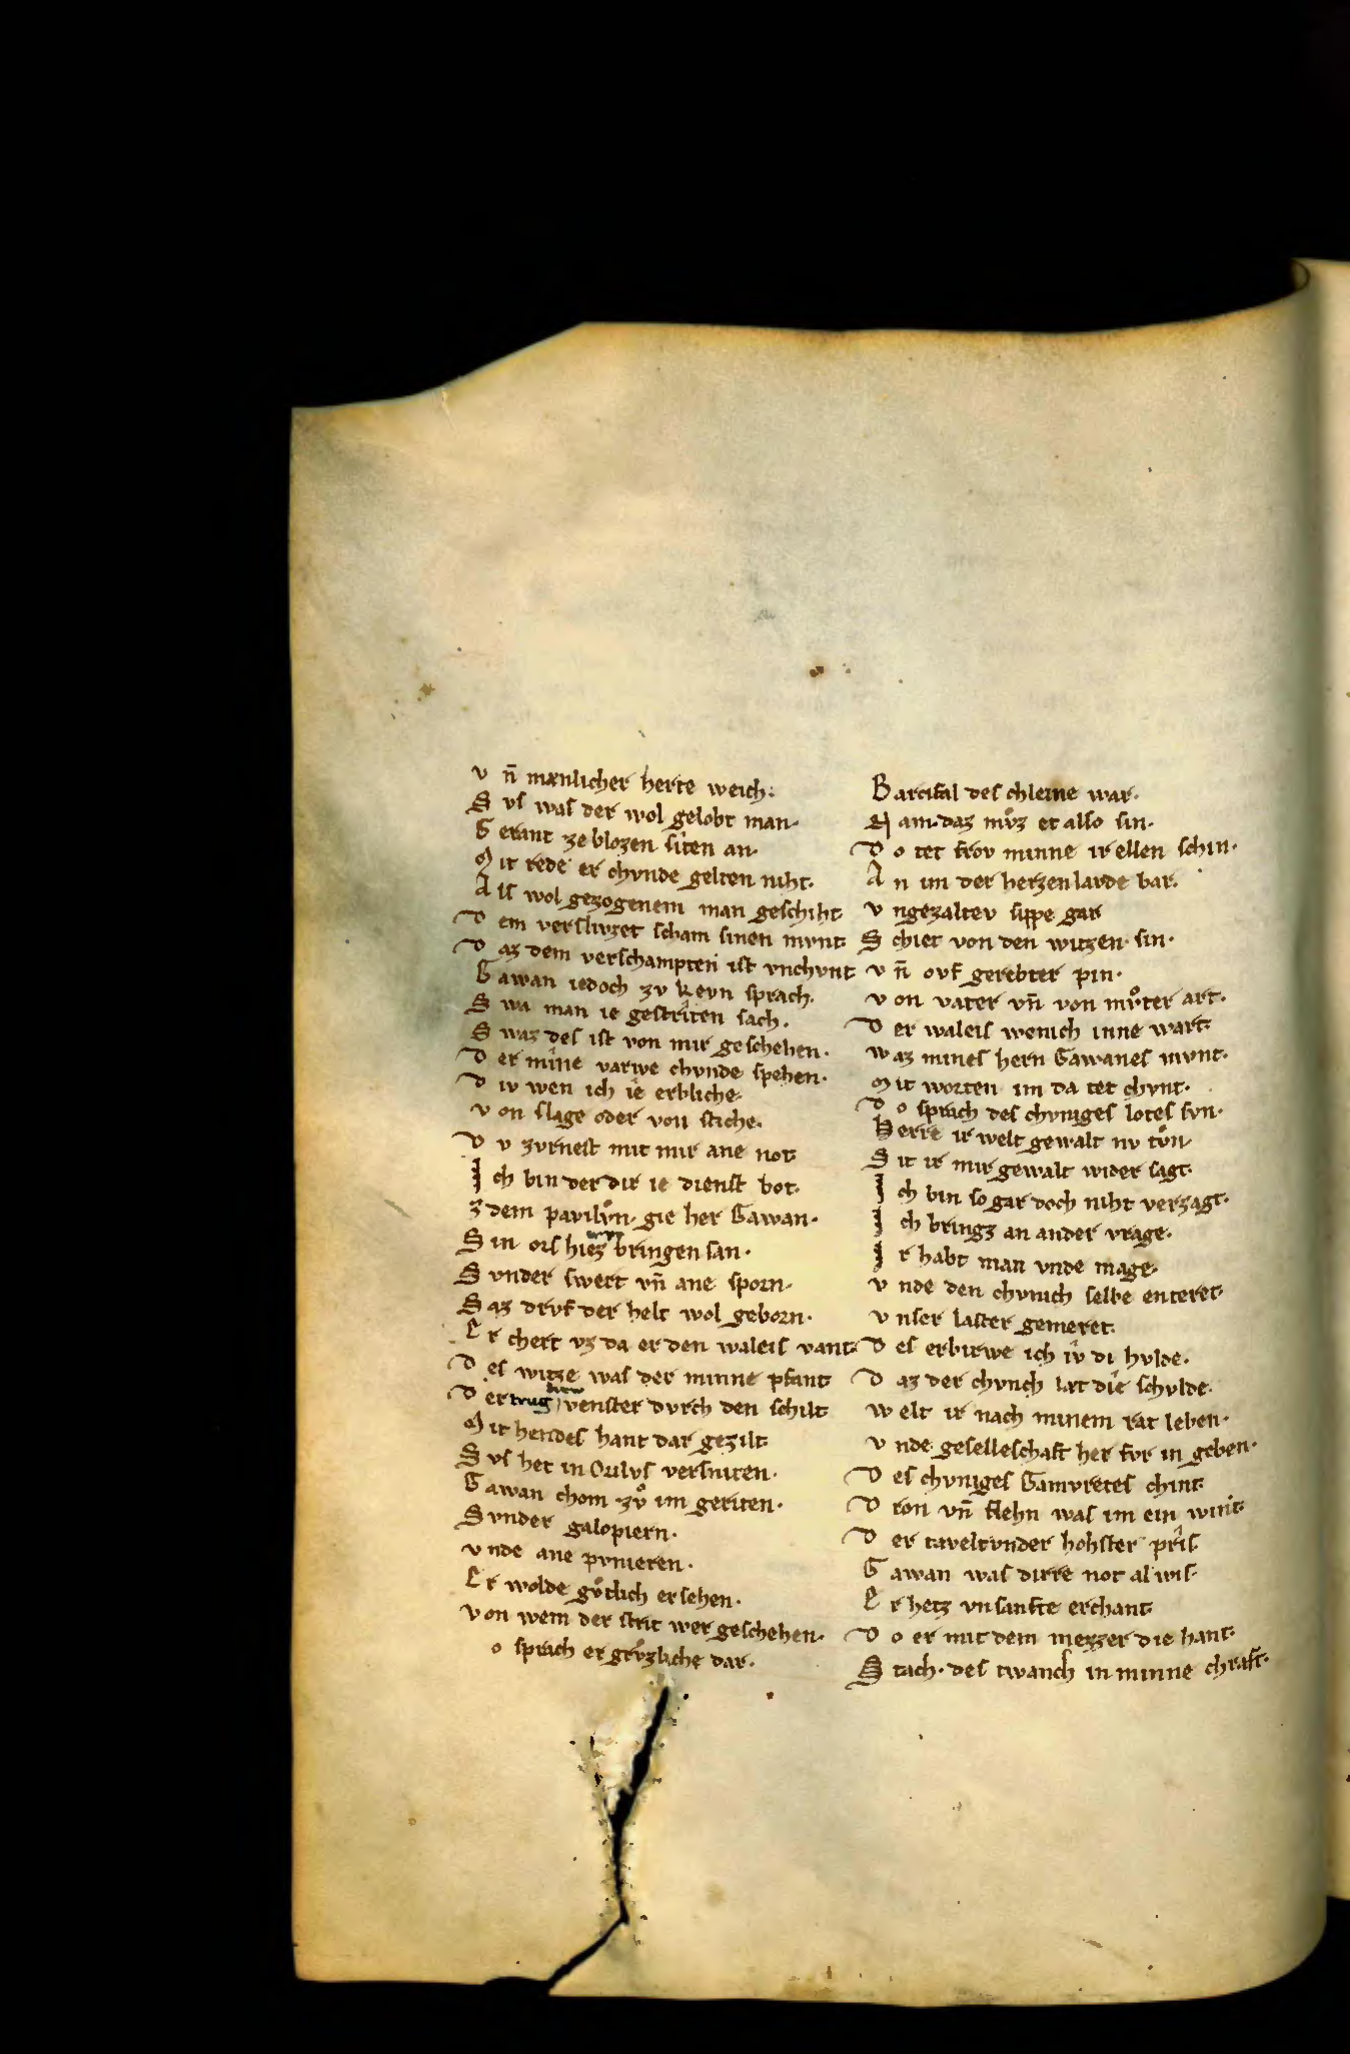 v n̄ mænlicher herte weich.
S vſ waſ der wol gelobt man.
G erant ze blozen ſiten an.
M it rede er chvnde gelten niht.
A lſ wol gezogenem man geſchiht
D em verſlivzet ſcham ſinen mvnt.
D az dem verſchampten iſt vnchvnt
G awan iedoch zv keyn ſprach.
S wa man ie geſtriten ſach.
S waz deſ iſt von mir geſchehen.
D er mine varwe chvnde ſpehen.
D iv wen ich ie erbliche.
v on ſlage oder von ſtiche.
D v zvrneſt mit mir ane not.
I ch bin der dir ie dienſt bot.
z dem pavilvͦn. gie her Gawan.
S in orſ hiez bringen ſan.
S vnder ſwert vn̄ ane ſporn.
S az drvf der helt wol geborn.
E r chert vz da er den waleiſ vant.
D eſ witze waſ der minne pfant
D er trug venſter dvrch den ſchilt
M it hendeſ hant dar gezilt.
S vſ het in Orilvſ verſniten.
G awan chom zvͦ im geriten.
S vnder galopiern.
v nde ane pvnieren.
E r wolde gvͦtlich erſehen.
v on wem der ſtrit wer geſchehen.
o ſprach er grvͦzliche dar.
B arcifal deſ chleine war.
N am. daz mvͦz et alſo ſin.
D o tet frov minne ir ellen ſchin.
A n im der herzenlavde bar.
v ngezaltev ſippe gar
S chiet von den witzen ſin.
v n̄ ovf gerebter pin.
v on vater vn̄ von mvͦter art.
D er waleiſ wenich inne wart.
w az mineſ hern Gawaneſ mvnt.
M it worten im da tet chvnt.
D o ſprach deſ chvnigeſ loteſ ſvn.
H erre ir welt gewalt nv tvͦn.
S it ir mir gewalt wider ſagt.
I ch bin ſo gar doch niht verzagt.
I ch bringz an ander vrage.
I r habt man vnde mage.
v nde den chvnich ſelbe enteret.
v nſer laſter gemeret.
D eſ erbirwe ich iv di hvlde.
D az der chvnch lat die ſchvlde.
w elt ir nach minem rat leben.
v nde geſelleſchaft her fvr in geben.
D eſ chvnigeſ Gamvreteſ chint.
D ron vn̄ flehn waſ im ein wint.
D er tavelrvnder hohſter priſ
G awan waſ dirre not al wiſ.
E r hetz vnſanfte erchant.
D o er mit dem mezzer die hant.
S tach. deſ twanch in minne chraft.